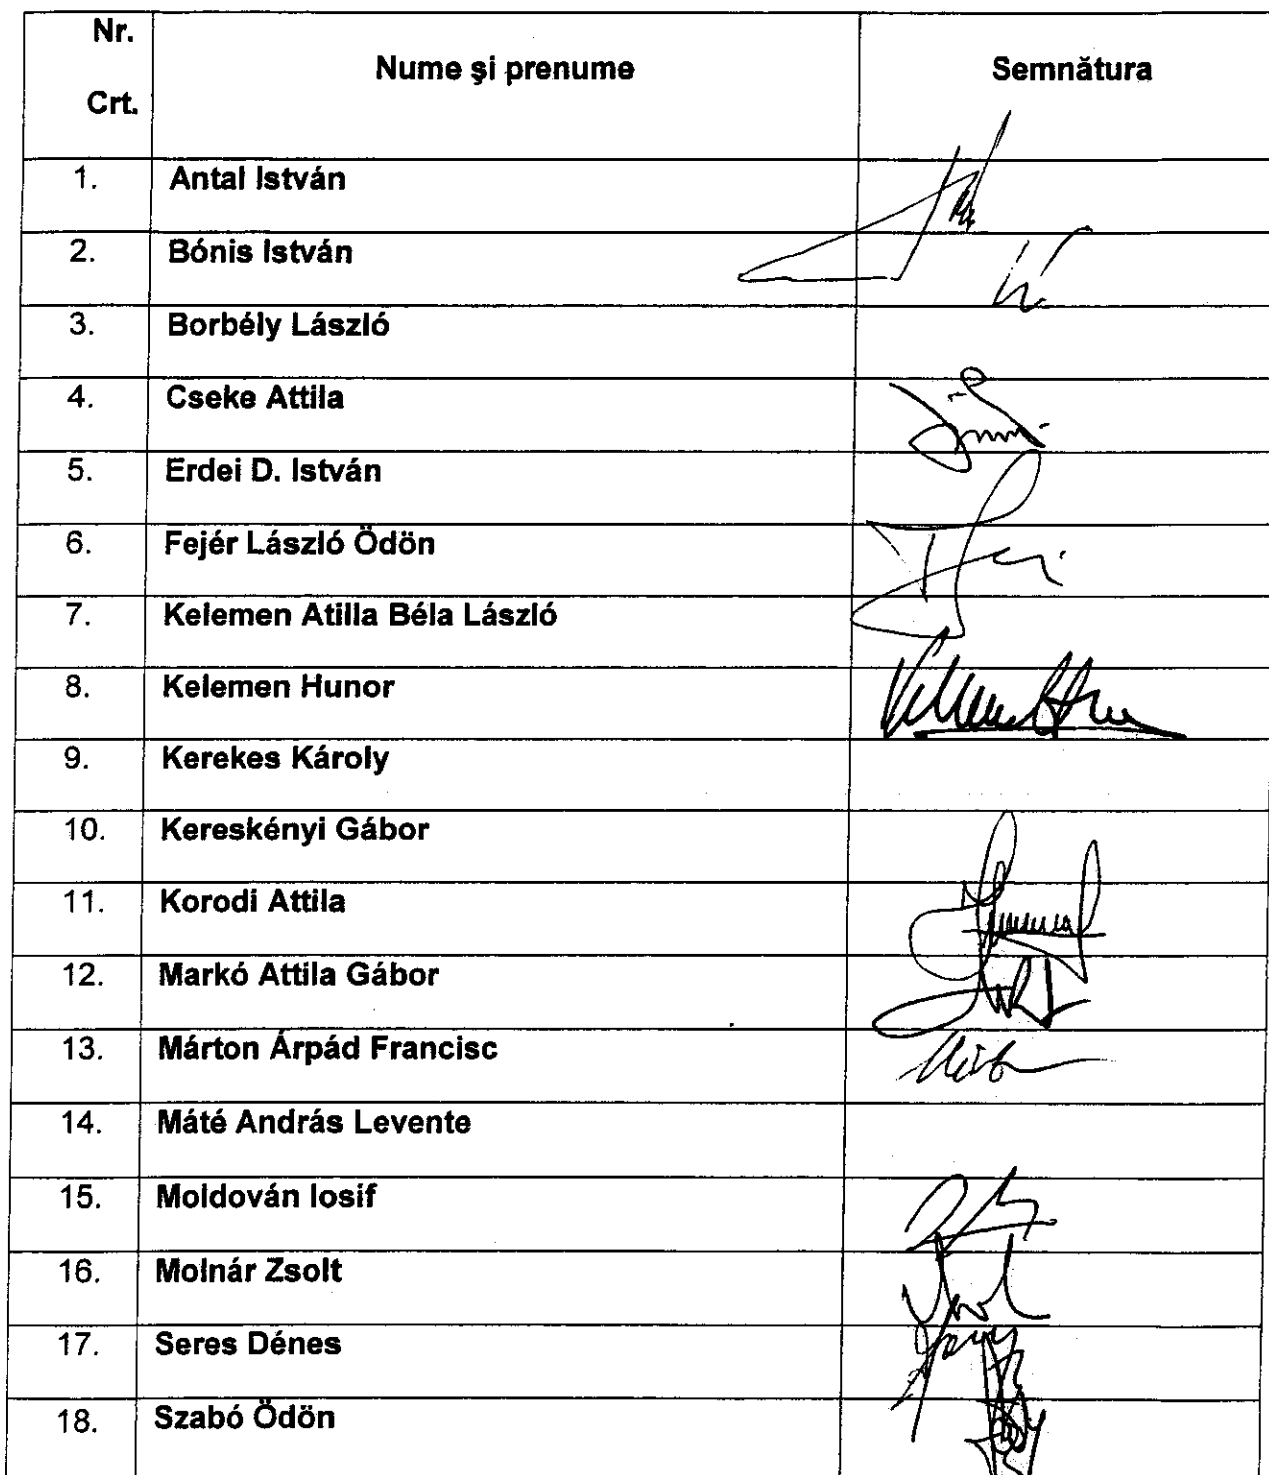 Nr. Crt. Nume și prenume Semnătura
1. Antal István
2. Bónis István
3. Borbély László
4. Cseke Attila
5. Erdei D. István
6. Fejér László Ödön
7. Kelemen Atilla Béla László
8. Kelemen Hunor
9. Kerekes Károly
10. Kereskényi Gábor
11. Korodi Attila
12. Markó Attila Gábor
13. Márton Árpád Francisc
14. Máté András Levente
15. Moldován Iosif
16. Molnár Zsolt
17. Seres Dénes
18. Szabó Ödön